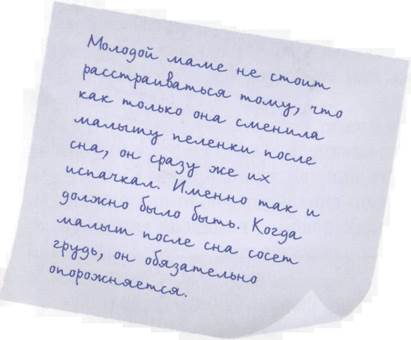 Молодой маме не стоит
расстраиваться тому, что
как только она сменила
малышу пеленки после
сна, он сразу же их
испачкал. Именно так и
должно было быть. Когда
малыш после сна сосет
грудь, он обязательно
опорожняется.